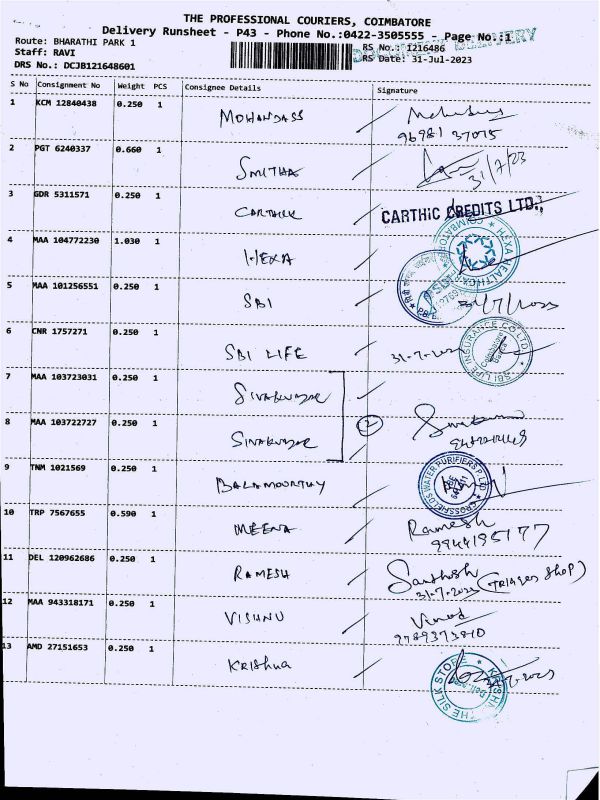 THE PROFESSIONAL COURIERS, COIMBATORE
Delivery Runsheet - P43 - Phone No.:0422-3505555 - Page No.:1
DOCUMENT DELIVERY
Route: BHARATHI PARK 1
RS No.: 1216486
Staff: RAVI
RS Date: 31-Jul-2023
DRS No.: DCJB121648601
S No Consignment No Weight PCS Consignee Details Signature
1 KCM 12840438 0.250 1 MOHANDASS
96981 37015
2 PGT 6240337 0.660 1 SMITHA 31/7/23
3 GDR 5311571 0.250 1 CARTHIK CARTHIC CREDITS LTD.,
4 MAA 104772230 1.030 1 HEXA HEXA HEALTHCARE COIMBATORE
5 MAA 101256551 0.250 1 SBI 31/7/2023
6 CNR 1757271 0.250 1 SBI LIFE 31-7-2023 SBI LIFE INSURANCE CO LTD. Coimbatore
7 MAA 103723031 0.250 1 SIVAKUMAR
8 MAA 103722727 0.250 1 SIVAKUMAR 2
9 TNM 1021569 0.250 1 BALAMOORTHY CROSSFIELDS WATER PURIFIERS P LTD
10 TRP 7567655 0.590 1 MEENA Ramesh
9944195177
11 DEL 120962686 0.250 1 RAMESH Santhosh
31-7-2023
12 MAA 943318171 0.250 1 VISHNU Vinod
9789373810
13 AMD 27151653 0.250 1 KRISHNA THE SILK STORE